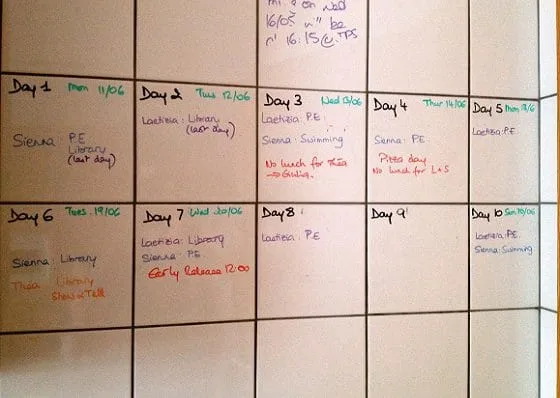 on Wed
16/05
be
16:15 @ TPS
Day 1 Mon 11/06
Sienna: P.E
Library
(last day)
Day 2 Tues 12/06
Laetizia: Library
(last day)
Day 3 Wed 13/06
Laetizia: P.E
Sienna: Swimming
No lunch for Thea
Day 4 Thur 14/06
Sienna: P.E
Pizza day
No lunch for L+S
Day 5 Mon
Laetizia: P.E
Day 6 Tues 19/06
Sienna: Library
Thea: Library
Show & Talk
Day 7 Wed 20/06
Laetizia: Library
Sienna: P.E
Early Release 12:00
Day 8
Laetizia: P.E
Day 9
Day 10
Laetizia: P.E
Sienna: Swimming